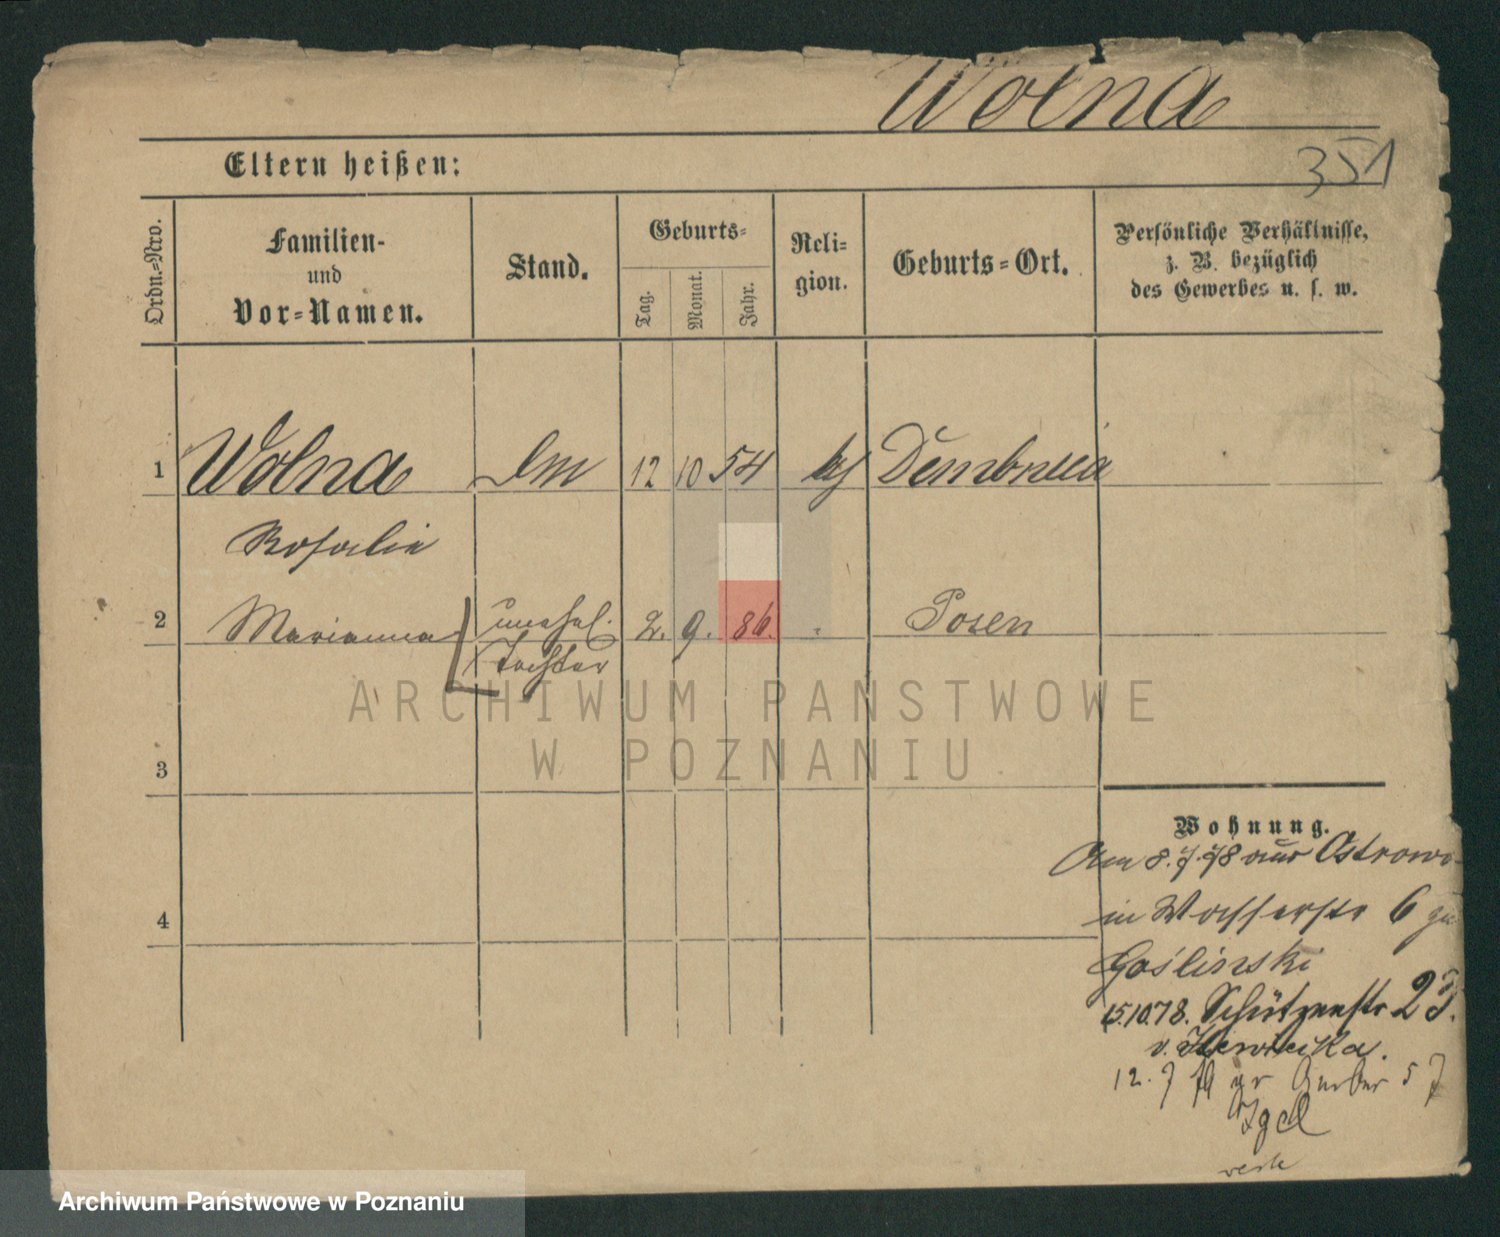 Wolna
351
Eltern heißen:
Ordn.=Nro.
Familien-
und
Vor=Namen.
Stand.
Geburts=
Tag.
Monat.
Jahr.
Reli=
gion.
Geburts=Ort.
Persönliche Verhältnisse,
z. B. bezüglich
des Gewerbes u. s. w.
1 Wolna 12 10 54
Rosalie
2 Marianna unehel. 2. 9. 86. Posen
Tochter
3
Wohnung.
Am 8.7.78 aus Ostrowo
4
in Wasserstr 6
Goślinski
15.10.78. Schützenstr 23.
v.
12. 7 79 gr Gerber 5
Igel
ARCHIWUM PAŃSTWOWE
W POZNANIU
Archiwum Państwowe w Poznaniu